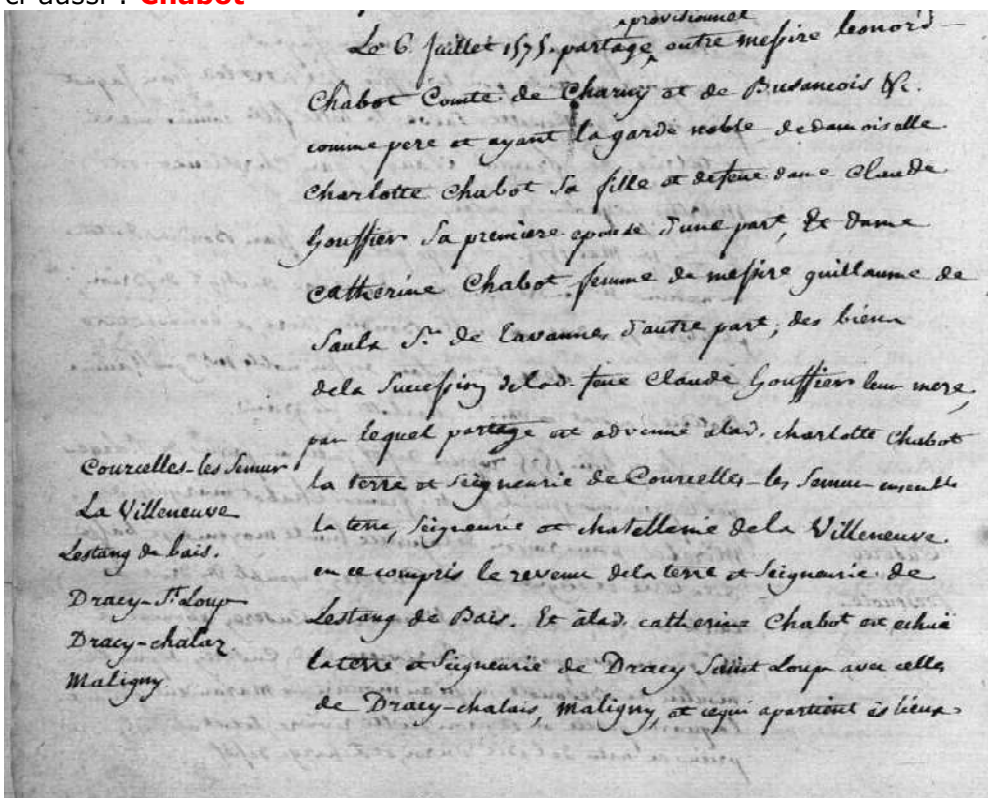 cf aussi : Chabot
provisionnel
Le 6 Juillet 1575. partage entre messire leonord
Chabot Comte de Charny et de Busancois &c.
comme pere et ayant la garde noble de damoiselle
Charlotte Chabot sa fille et defeue dame Claude
Gouffier sa premiere epouse d'une part, Et Dame
Catherine Chabot femme de messire guillaume de
Saulx Sr. de Tavannes d'autre part, des biens
dela Succession delad. feue Claude Gouffier leur mere,
par lequel partage est advenue alad. charlotte Chabot
la terre et Seigneurie de Courcelles-les Semur ensemble
la terre, Seigneurie et chatellenie dela Villeneuve
en ce compris le revenu dela terre et Seigneurie de
Lestang de Bais. Et àlad. catherine Chabot est echüe
la terre et Seigneurie de Dracy Saint Loup avec celles
de Dracy-chalais, Maligny, et cequi apartient ès lieux
Courcelles-les Semur
La Villeneuve
Lestang de bais.
Dracy-St. Loup
Dracy-chalaz
Maligny